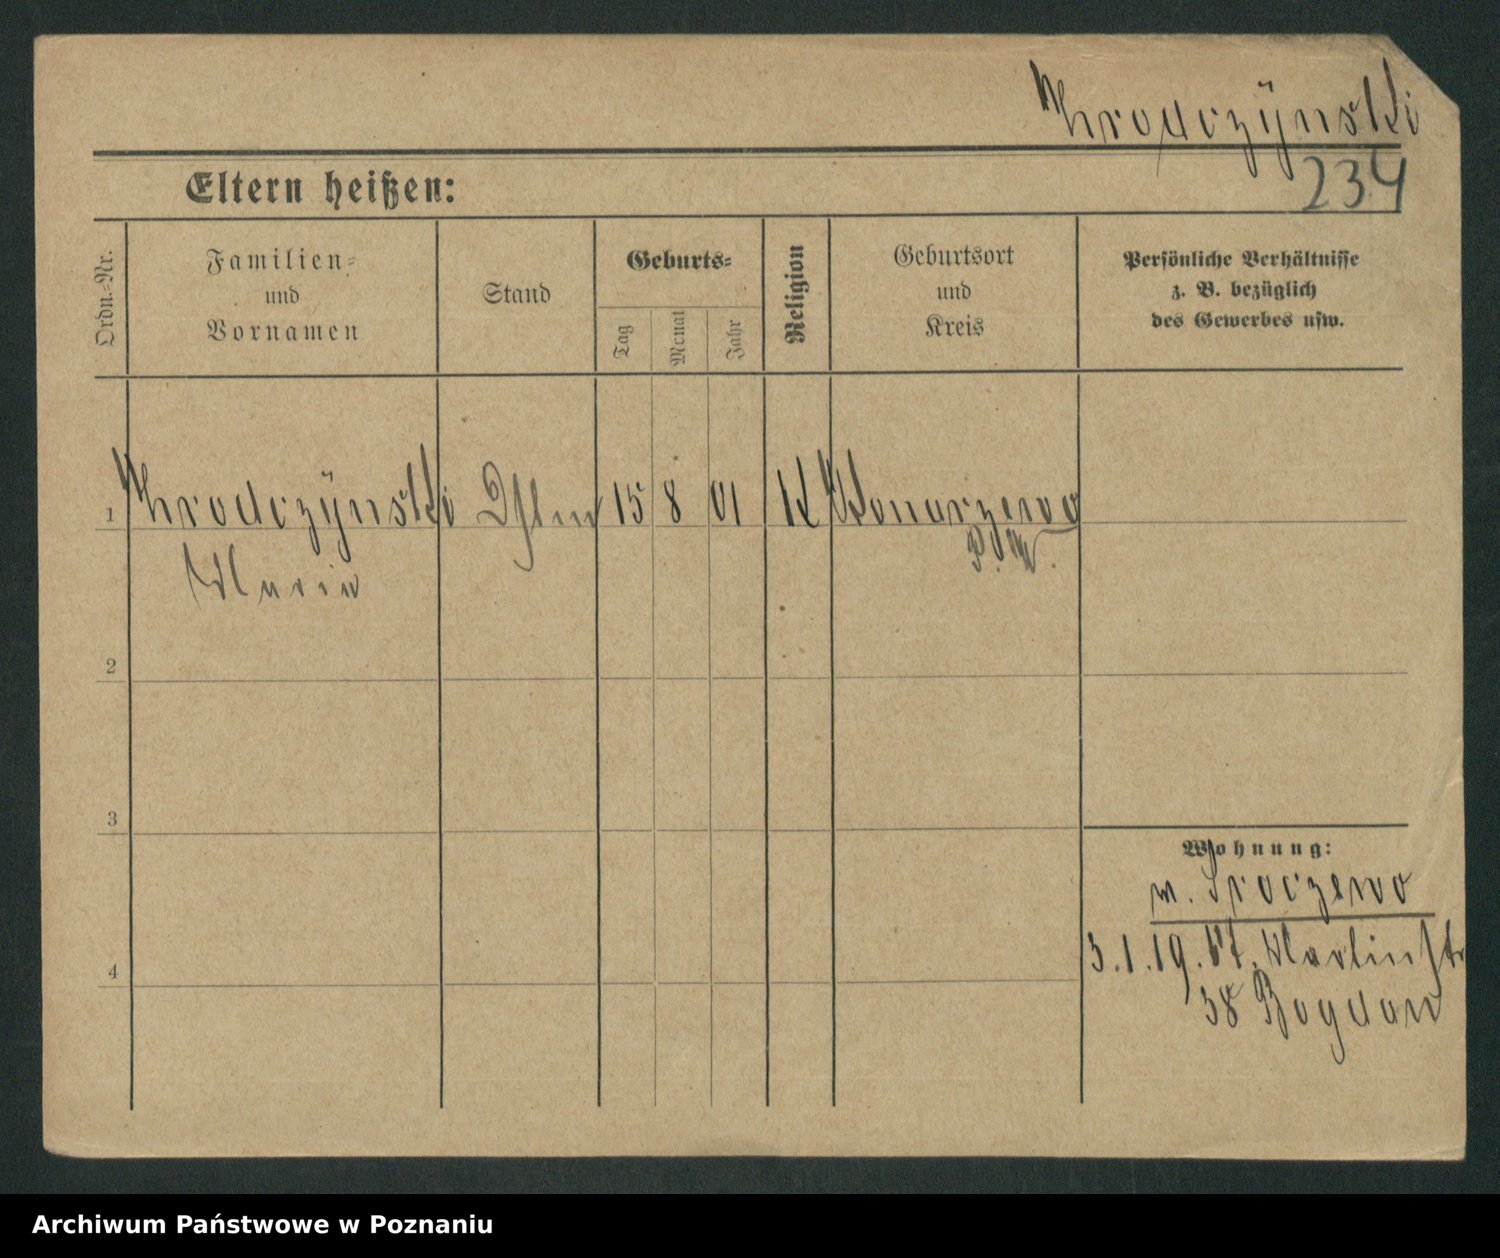 234
Eltern heißen:
Ordn.-Nr.
Familien-
und
Vornamen
Stand
Geburts-
Tag
Monat
Jahr
Religion
Geburtsort
und
Kreis
Persönliche Verhältnisse
z. B. bezüglich
des Gewerbes usw.
1
15 8 01 K Konarzewo
P. W.
Maria
2
3
4
Wohnung:
w. Sroczewo
3.1.19. St. Martinstr
38 Bogdan
Archiwum Państwowe w Poznaniu